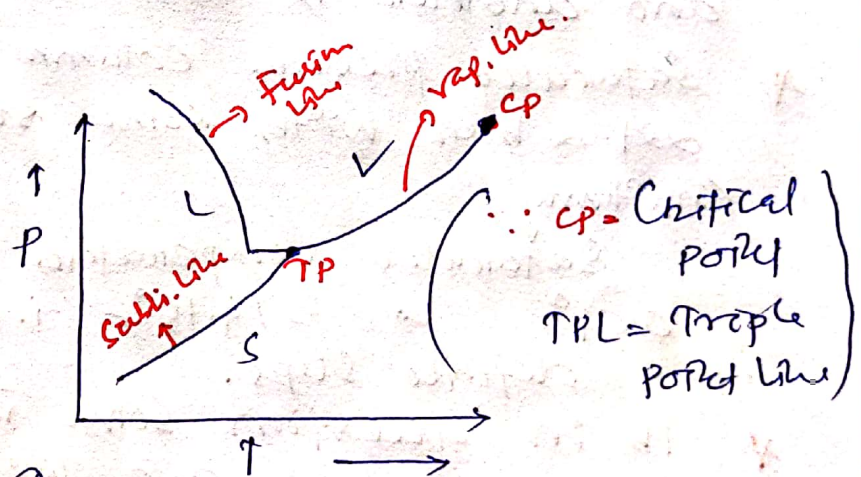 Fusion
Line
vap. line.
CP
V
L
P
TP
Subli. Line
S
T
∵ CP = Critical
point
TPL = Triple
point Line